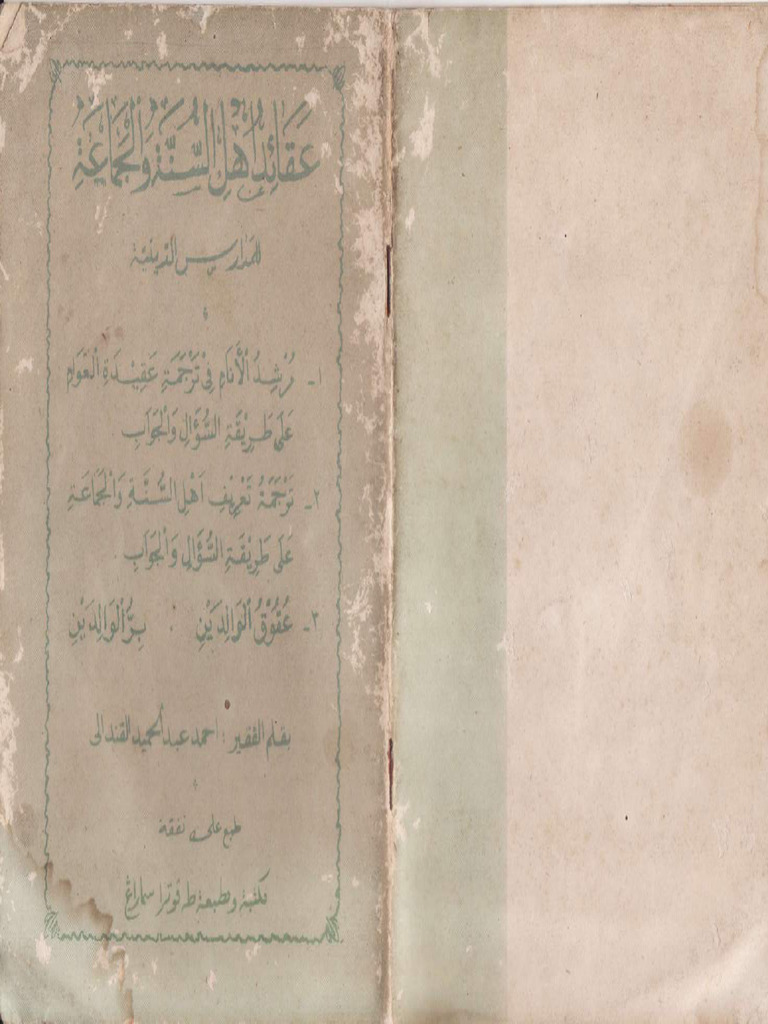 عَقَائِدُ اَهْلِ السُّنَّةِ وَالْجَمَاعَةِ
للمدارس الدينية
١- رُشِدُ الْأَنَامِ فِيْ تَرْجَمَةِ عَقِيْدَةِ الْعَوَامِ
عَلَى طَرِيْقَةِ السُّؤَالِ وَالْجَوَابِ
٢- تَرْجَمَةُ تَعْرِيْفِ اَهْلِ السُّنَّةِ وَالْجَمَاعَةِ
عَلَى طَرِيْقَةِ السُّؤَالِ وَالْجَوَابِ .
٣- عُقُوْقُ الْوَالِدَيْنِ . بِرُّ الْوَالِدَيْنِ
بقلم الفقير : احمد عبد الحميد القندالى
طبع على نفقة
مكتبة ومطبعة طه فوترا سماراڠ